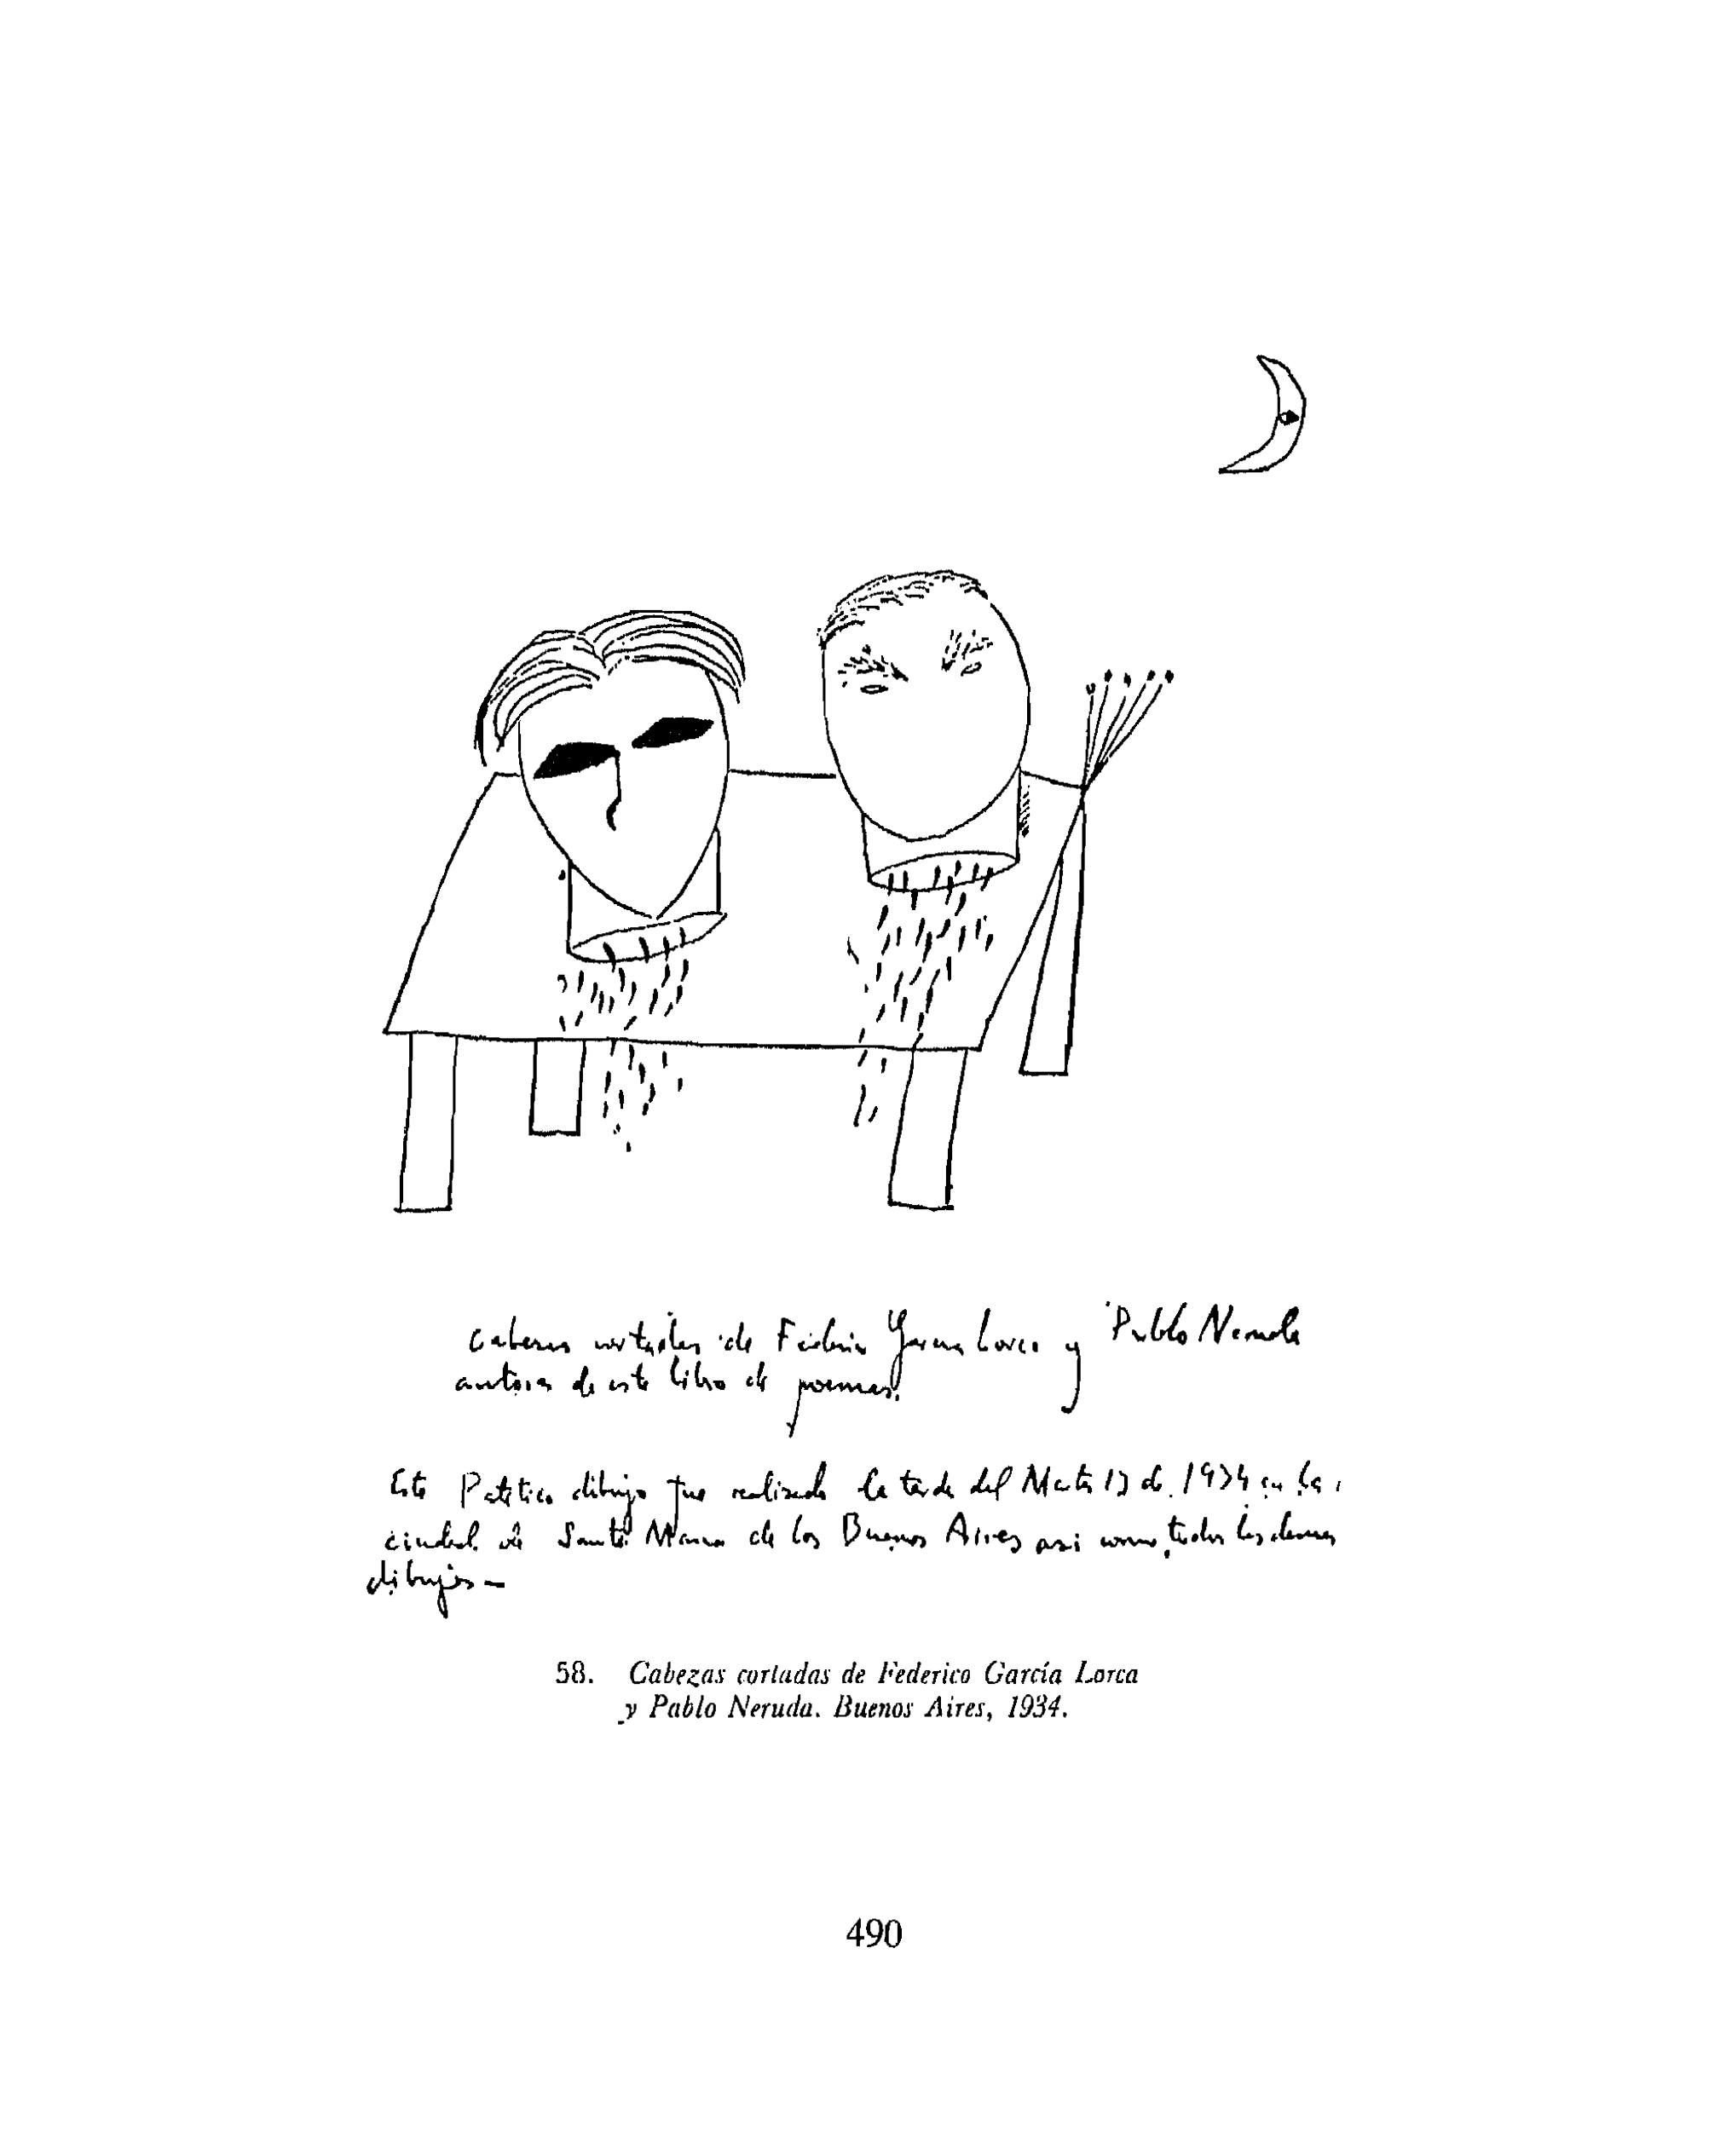 Cabezas cortadas de Federico García Lorca y Pablo Neruda
autores de este libro de poemas.
Este Patetico dibujo fue realizado la tarde del Martes 13 de 1934 en la
ciudad de Santa Maria de los Buenos Aires asi como todos los demas
dibujos —
58. Cabezas cortadas de Federico García Lorca
y Pablo Neruda. Buenos Aires, 1934.
490